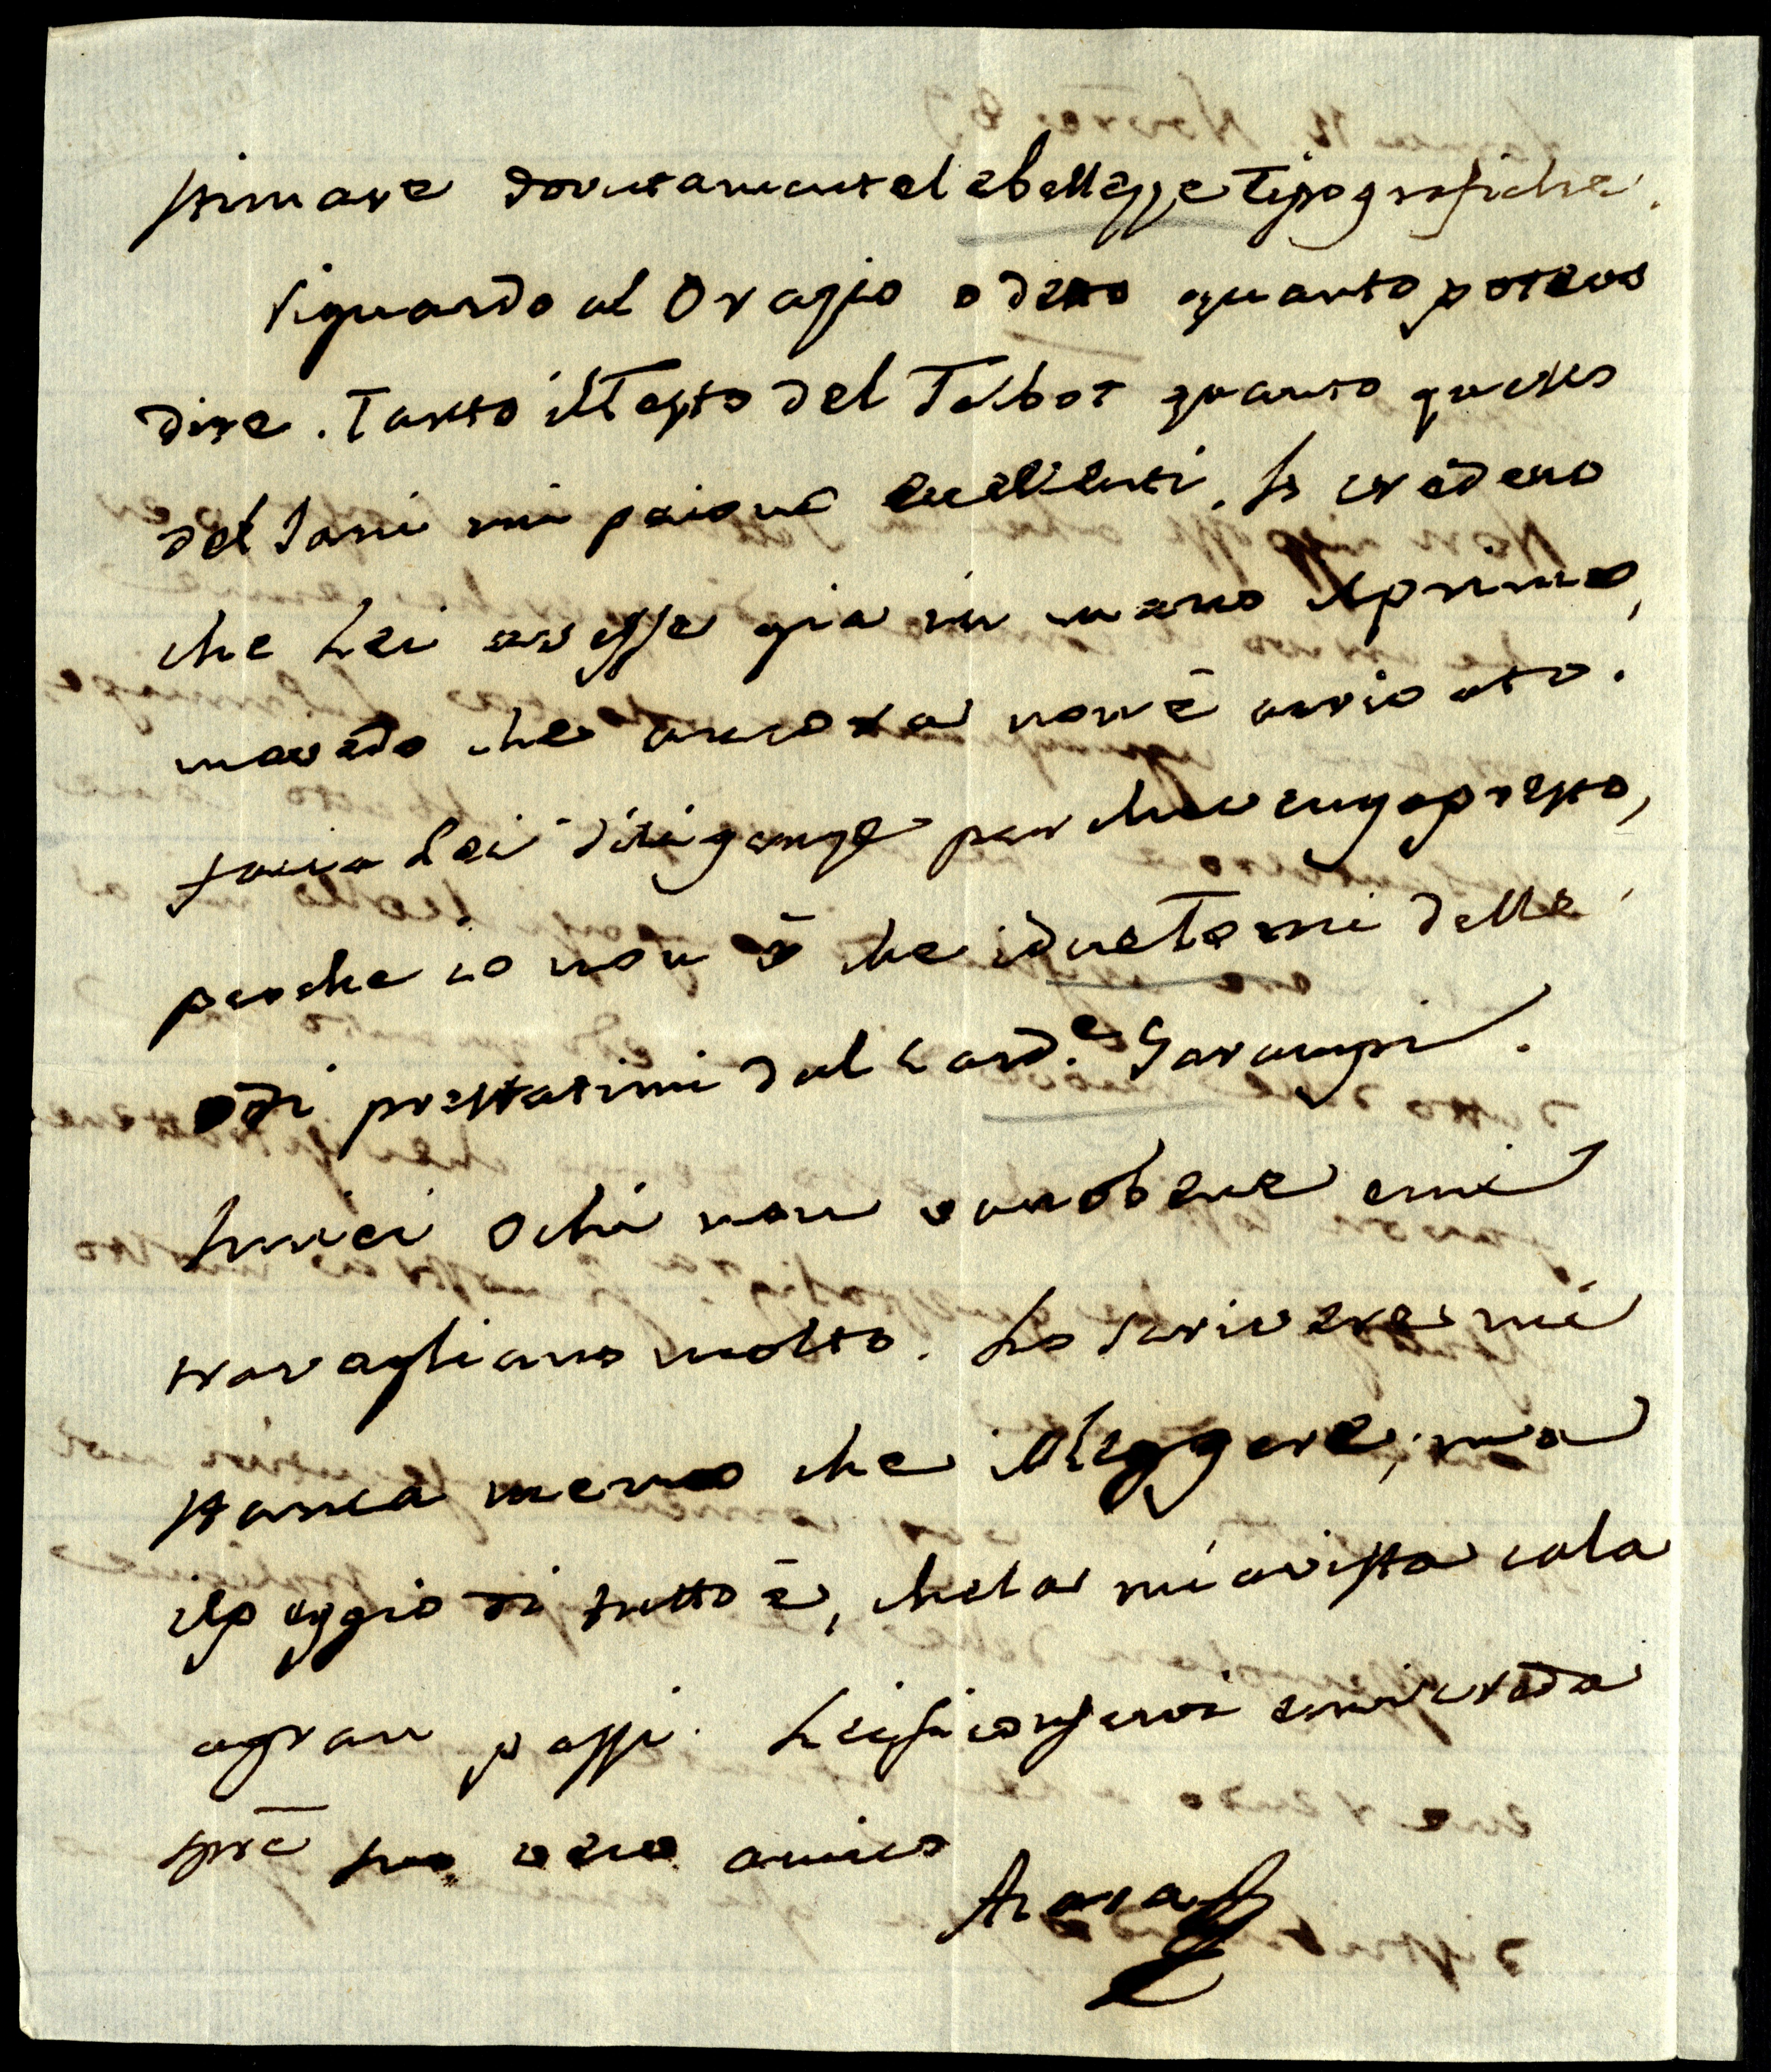 stimare dovutamente le bellezze Tipografiche.
Riguardo al Orazio o detto quanto potevo
dire. Tanto il Testo del Talbot quanto questo
del Jani mi paiono eccellenti. Io credevo
che Lei avesse gia in mano il primo,
ma vedo che ancora non è arrivato.
faccia Lei diligenze perche venga presto,
perche io non ō che i due Tomi delle
Odi prestatimi dal Card.e Garampi.
I miei ochi non vanobene e mi
travagliano molto. Lo scrivere mi
stanca meno che il leggere; ma
il peggio di tutto ē, che la mia vista cala
a gran passi. Lei si conservi e mi creda
spre suo vero amico
Azara